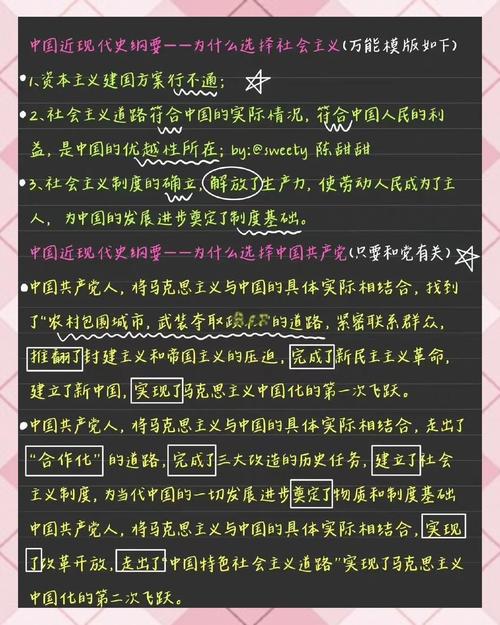 中国近现代史纲要——为什么选择社会主义(万能模版如下)
1、资本主义建国方案行不通;
2、社会主义道路符合中国的实际情况,符合中国人民的利
益,是中国的优越性所在;by:@sweety 陈甜甜
3、社会主义制度的确立,解放了生产力,使劳动人民成为了主
人,为中国的发展进步奠定了制度基础。
中国近现代史纲要——为什么选择中国共产党(只要和党有关)
中国共产党人,将马克思主义与中国的具体实际相结合,找到
了“农村包围城市,武装夺取政权”的道路,紧密联系群众,
推翻了封建主义和帝国主义的压迫,完成了新民主主义革命,
建立了新中国,实现了马克思主义中国化的第一次飞跃。
中国共产党人,将马克思主义与中国的具体实际相结合,走出了
“合作化”的道路,完成了三大改造的历史任务,建立了社会
主义制度,为当代中国的一切发展进步奠定了物质和制度基础
中国共产党人,将马克思主义与中国的具体实际相结合,实现
了改革开放,走出了“中国特色社会主义道路”实现了马克思主义
中国化的第二次飞跃。